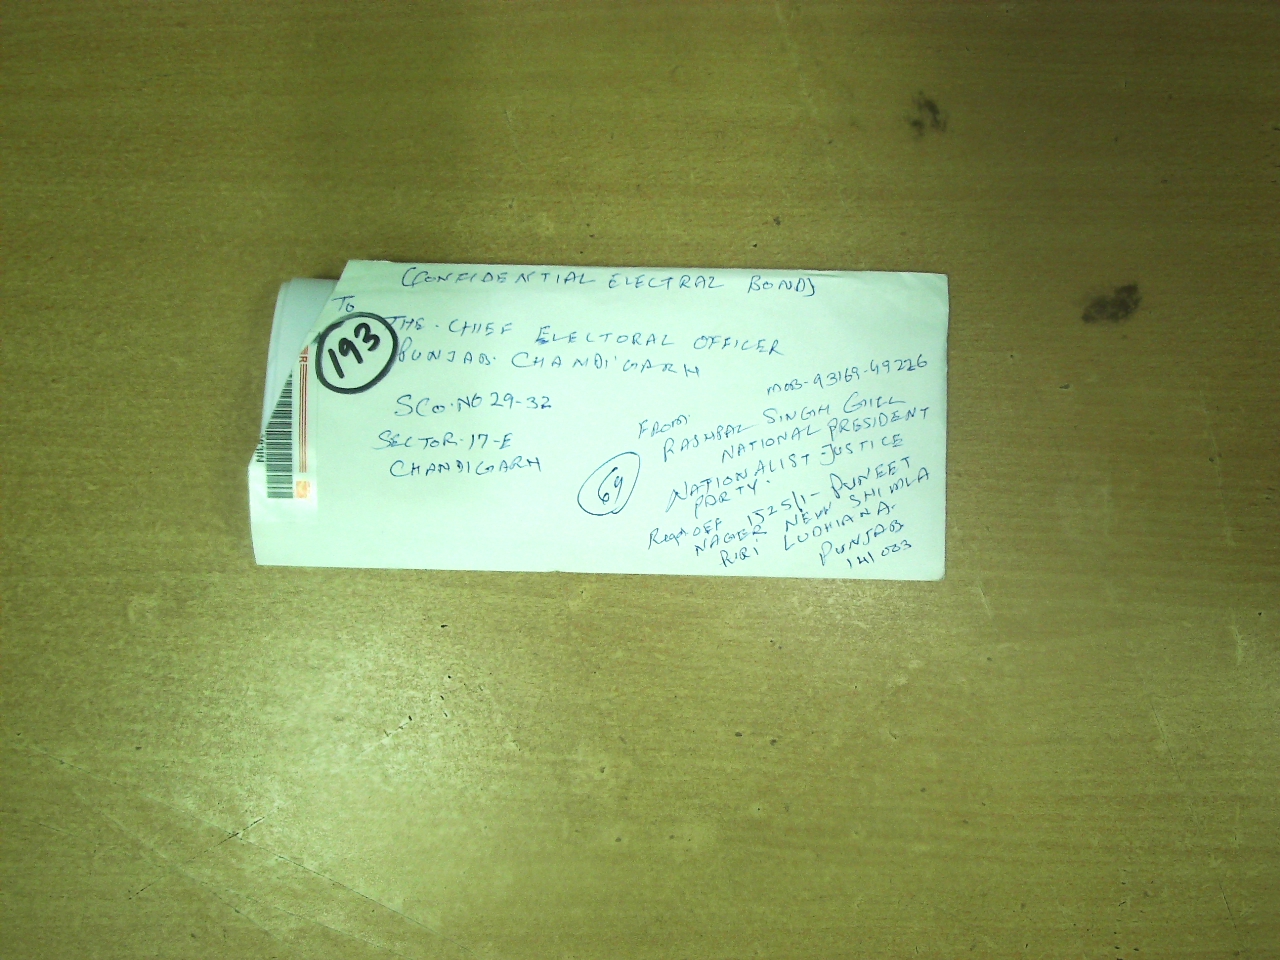 (CONFIDENTIAL ELECTRAL BOND)
To
THE. CHIEF ELECTORAL OFFICER
PUNJAB. CHANDIGARH
193
SCO. NO 29-32
SECTOR. 17-E
CHANDIGARH
69
MOB-93169-49226
FROM
RASHPAL SINGH GILL
NATIONAL PRESIDENT
NATIONALIST JUSTICE
PARTY.
1525/1- PUNEET
NAGER NEW SHIMLA
LUDHIANA.
PUNJAB
141033